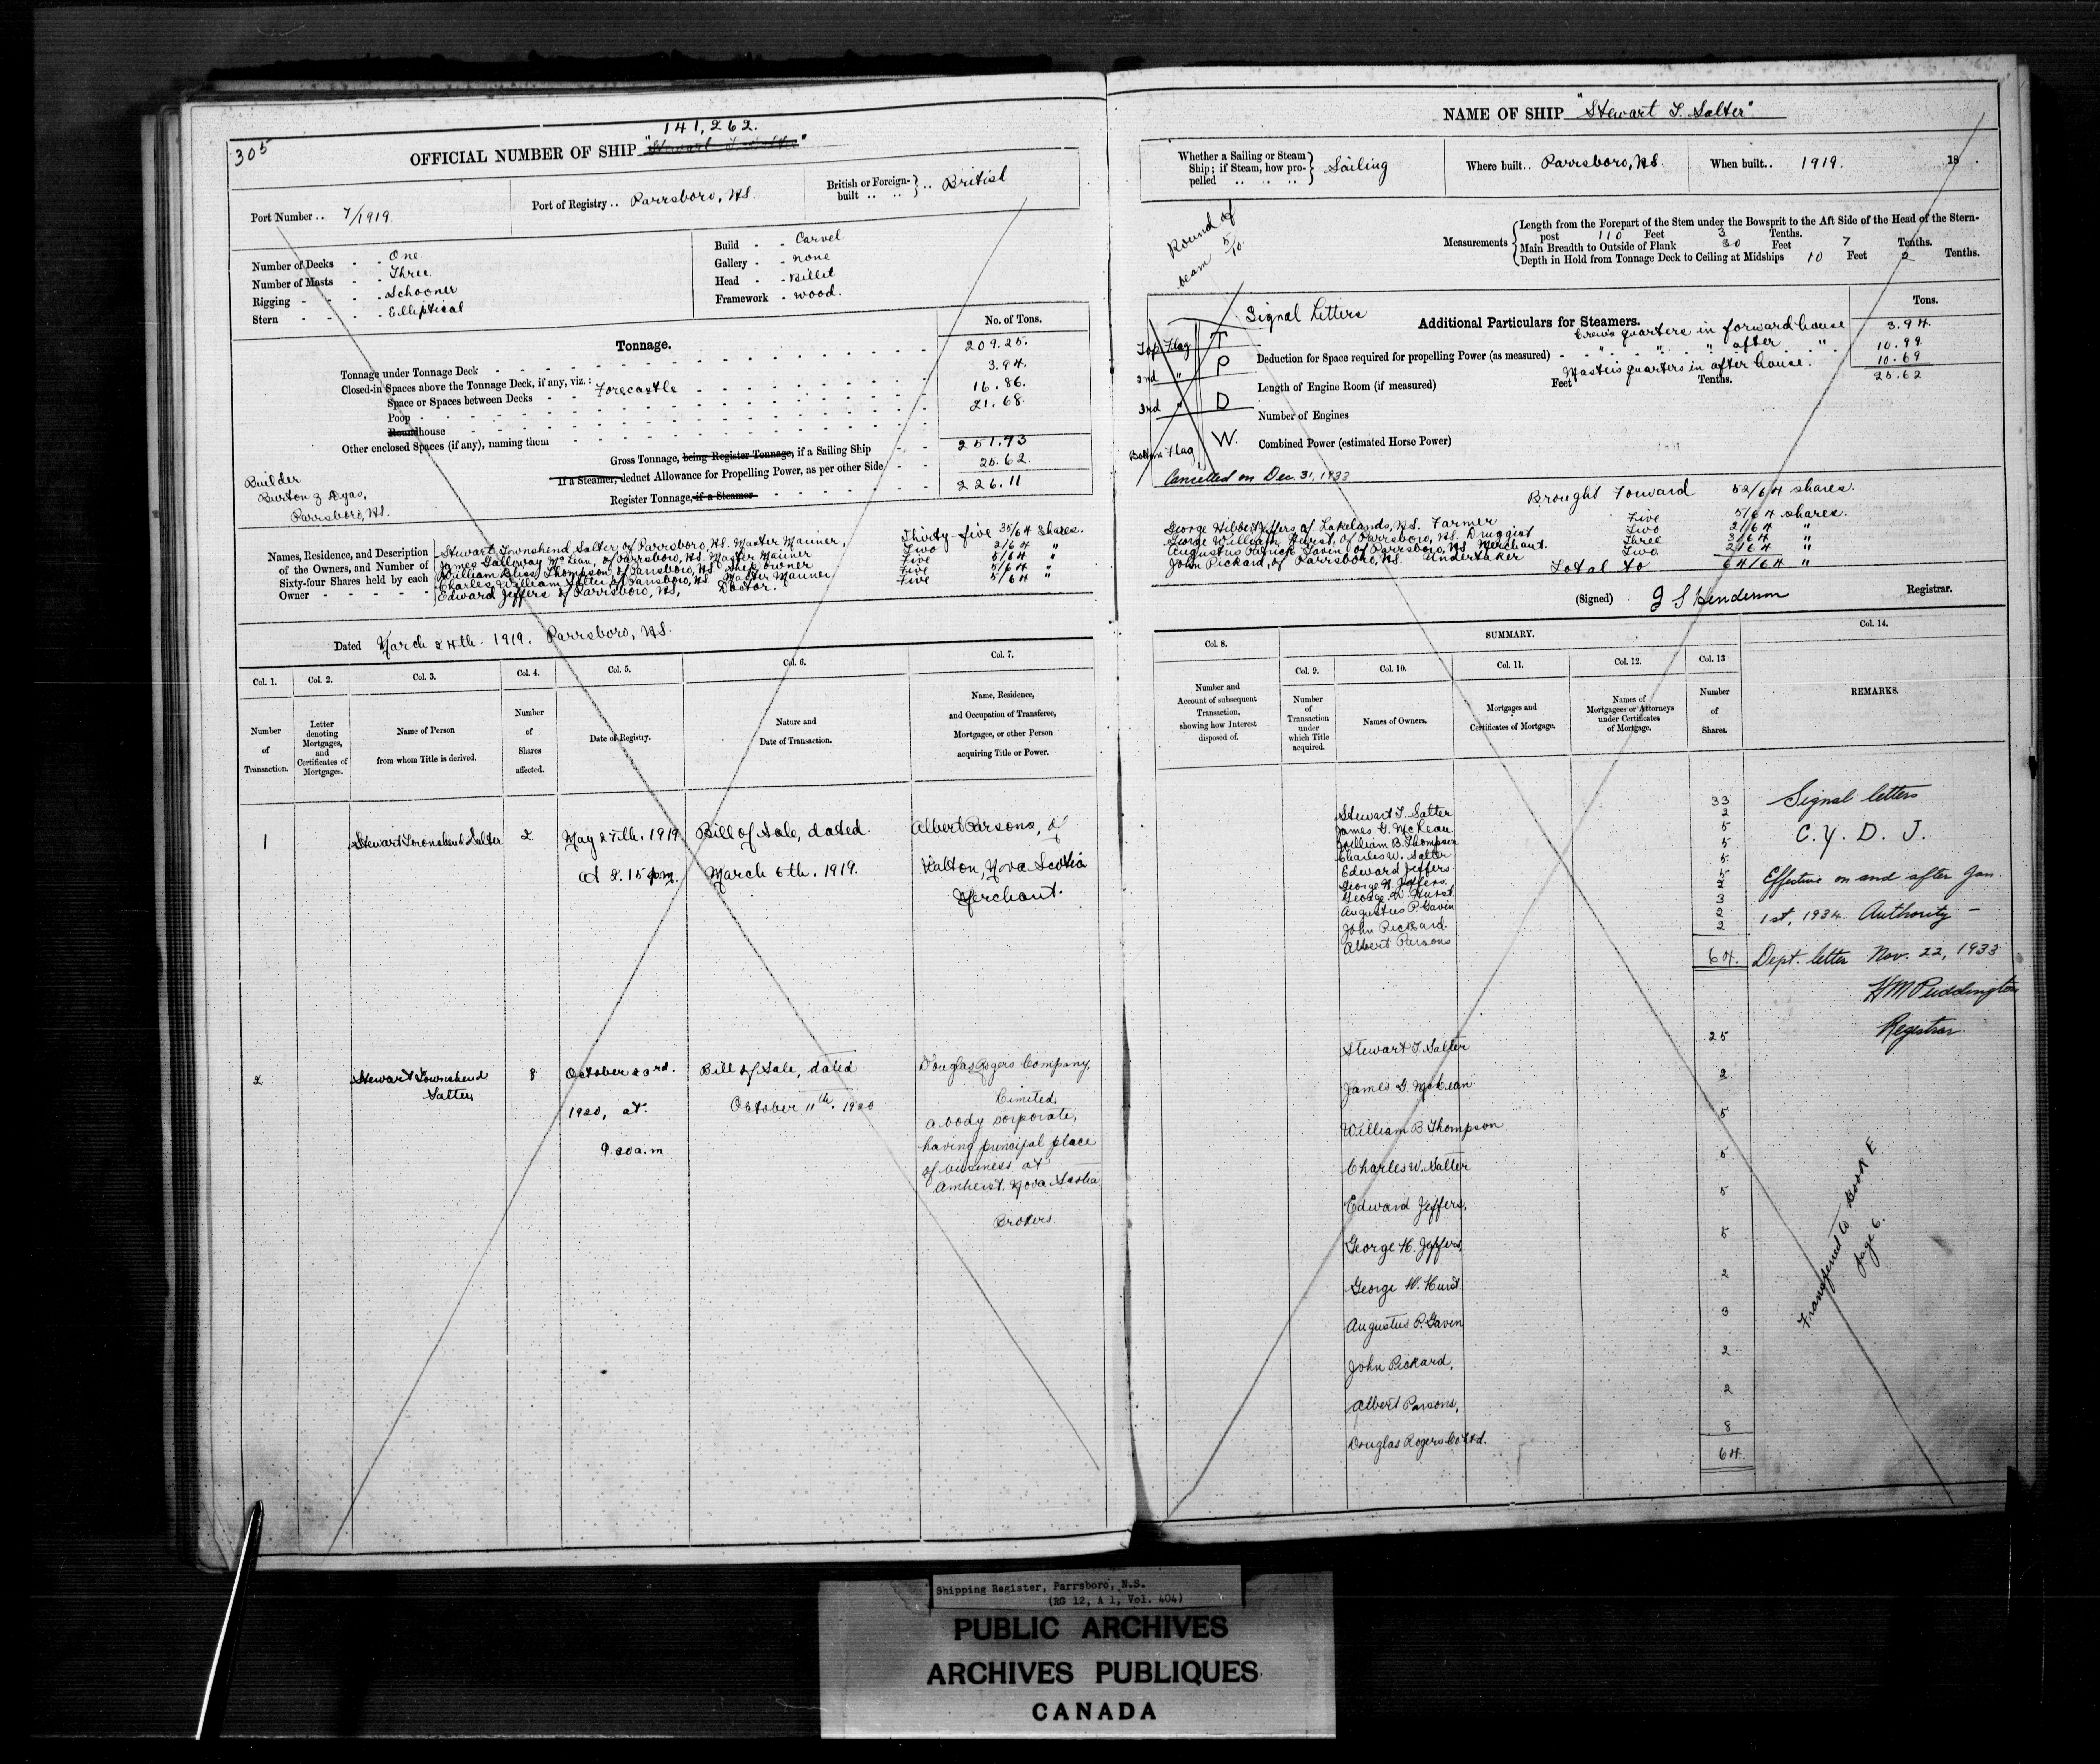 305
141,262.
OFFICIAL NUMBER OF SHIP "Stewart T. Salter"
Port Number .. 7/1919.
Port of Registry .. Parrsboro, N.S.
British or Foreign-built .. .. } .. British
Number of Decks - - One.
Number of Masts - - Three.
Rigging - - - - Schooner
Stern - - - - Elliptical
Build - - Carvel
Gallery - - none
Head - - Billet
Framework - wood.
Tonnage.
No. of Tons.
Tonnage under Tonnage Deck 209.25.
Closed-in Spaces above the Tonnage Deck, if any, viz.:
Space or Spaces between Decks - - Forecastle 3.94.
Poop - 16.86.
Roundhouse 21.68.
Other enclosed Spaces (if any), naming them
Gross Tonnage, being Register Tonnage, if a Sailing Ship 251.73
If a Steamer, deduct Allowance for Propelling Power, as per other Side 25.62.
Register Tonnage, if a Steamer 226.11
Builder
Burton Z Dyas,
Parrsboro, N.S.
Names, Residence, and Description of the Owners, and Number of Sixty-four Shares held by each Owner - - - - -
Stewart Townshend Salter, of Parrsboro, N.S. Master Mariner, Thirty-five 35/64 Shares.
James Galloway McLean, of Parrsboro, N.S. Master Mariner Two 2/64 "
William Bliss Thompson, of Parrsboro, N.S. Ship owner Five 5/64 "
Charles William Salter of Parrsboro, N.S. Master Mariner Five 5/64 "
Edward Jeffers of Parrsboro, N.S., Doctor. Five 5/64 "
Dated March 24th. 1919. Parrsboro, N.S.
Col. 1. Col. 2. Col. 3. Col. 4. Col. 5. Col. 6. Col. 7.
Number of Transaction.
Letter denoting Mortgages, and Certificates of Mortgages.
Name of Person from whom Title is derived.
Number of Shares affected.
Date of Registry.
Nature and Date of Transaction.
Name, Residence, and Occupation of Transferee, Mortgagee, or other Person acquiring Title or Power.
1 Stewart Townshend Salter 2 May 27th. 1919 Bill of Sale, dated. Albert Parsons, of
at 2.15 p.m. March 6th. 1919. Walton, Nova Scotia
Merchant.
2 Stewart Townshend 8 October 23rd. Bill of Sale, dated Douglas Rogers Company,
Salter, Limited,
1920, at. October 11th. 1920 a body corporate,
having principal place
9.20 a.m of business at
Amherst. Nova Scotia
Brokers.
NAME OF SHIP "Stewart T. Salter"
Whether a Sailing or Steam Ship; if Steam, how propelled .. .. .. } Sailing
Where built .. Parrsboro, N.S.
When built .. 1919. 18 .
Round of
beam 5/10.
Measurements
Length from the Forepart of the Stem under the Bowsprit to the Aft Side of the Head of the Stern-
post 110 Feet 3 Tenths.
Main Breadth to Outside of Plank 30 Feet 7 Tenths.
Depth in Hold from Tonnage Deck to Ceiling at Midships 10 Feet 2 Tenths.
Signal Letters
Top Flag T
2nd " P
3rd " D
Bottom Flag W.
Cancelled on Dec. 31, 1933
Additional Particulars for Steamers.
Tons.
Crew's quarters in forward house 3.94.
" " " after " . 10.99
Deduction for Space required for propelling Power (as measured)
Master's quarters in after house. 10.69
25.62
Length of Engine Room (if measured) Feet Tenths.
Number of Engines
Combined Power (estimated Horse Power)
Brought Forward 52/64 shares.
George Hibbert Jeffers of Lakelands, N.S. Farmer Five 5/64 shares.
George William Hurst, of Parrsboro, N.S. Druggist Two 2/64 "
Augustus Patrick Gavin, of Parrsboro, N.S. Merchant. Three 3/64 "
John Pickard, of Parrsboro, N.S. Undertaker Two 2/64 "
Total to 64/64 "
(Signed) J S Henderson Registrar.
Col. 8.
SUMMARY.
Col. 14.
Col. 9. Col. 10. Col. 11. Col. 12. Col. 13
Number and Account of subsequent Transaction, showing how Interest disposed of.
Number of Transaction under which Title acquired.
Names of Owners.
Mortgages and Certificates of Mortgage.
Names of Mortgagees or Attorneys under Certificates of Mortgage.
Number of Shares.
REMARKS.
Stewart T. Salter 33
James G. McLean 2
William B. Thompson 5
Charles W. Salter 5
Edward Jeffers. 5
George H. Jeffers. 5
George W. Hurst. 2
Augustus P. Gavin 3
John Pickard. 2
Albert Parsons 2
64.
Signal letters
C. Y. D. J.
Effective on and after Jan.
1st, 1934. Authority -
Dept. letter Nov. 22, 1933
H M Puddington
Registrar.
Stewart T. Salter 25
James G. McLean 2
William B. Thompson 5
Charles W. Salter 5
Edward Jeffers, 5
George H. Jeffers, 5
George W. Hurst. 2
Augustus P. Gavin 3
John Pickard, 2
Albert Parsons, 2
Douglas Rogers Co Ltd. 8
64.
Transferred to Book E
page 6.
Shipping Register, Parrsboro, N.S.
(RG 12, A 1, Vol. 404)
PUBLIC ARCHIVES
ARCHIVES PUBLIQUES
CANADA